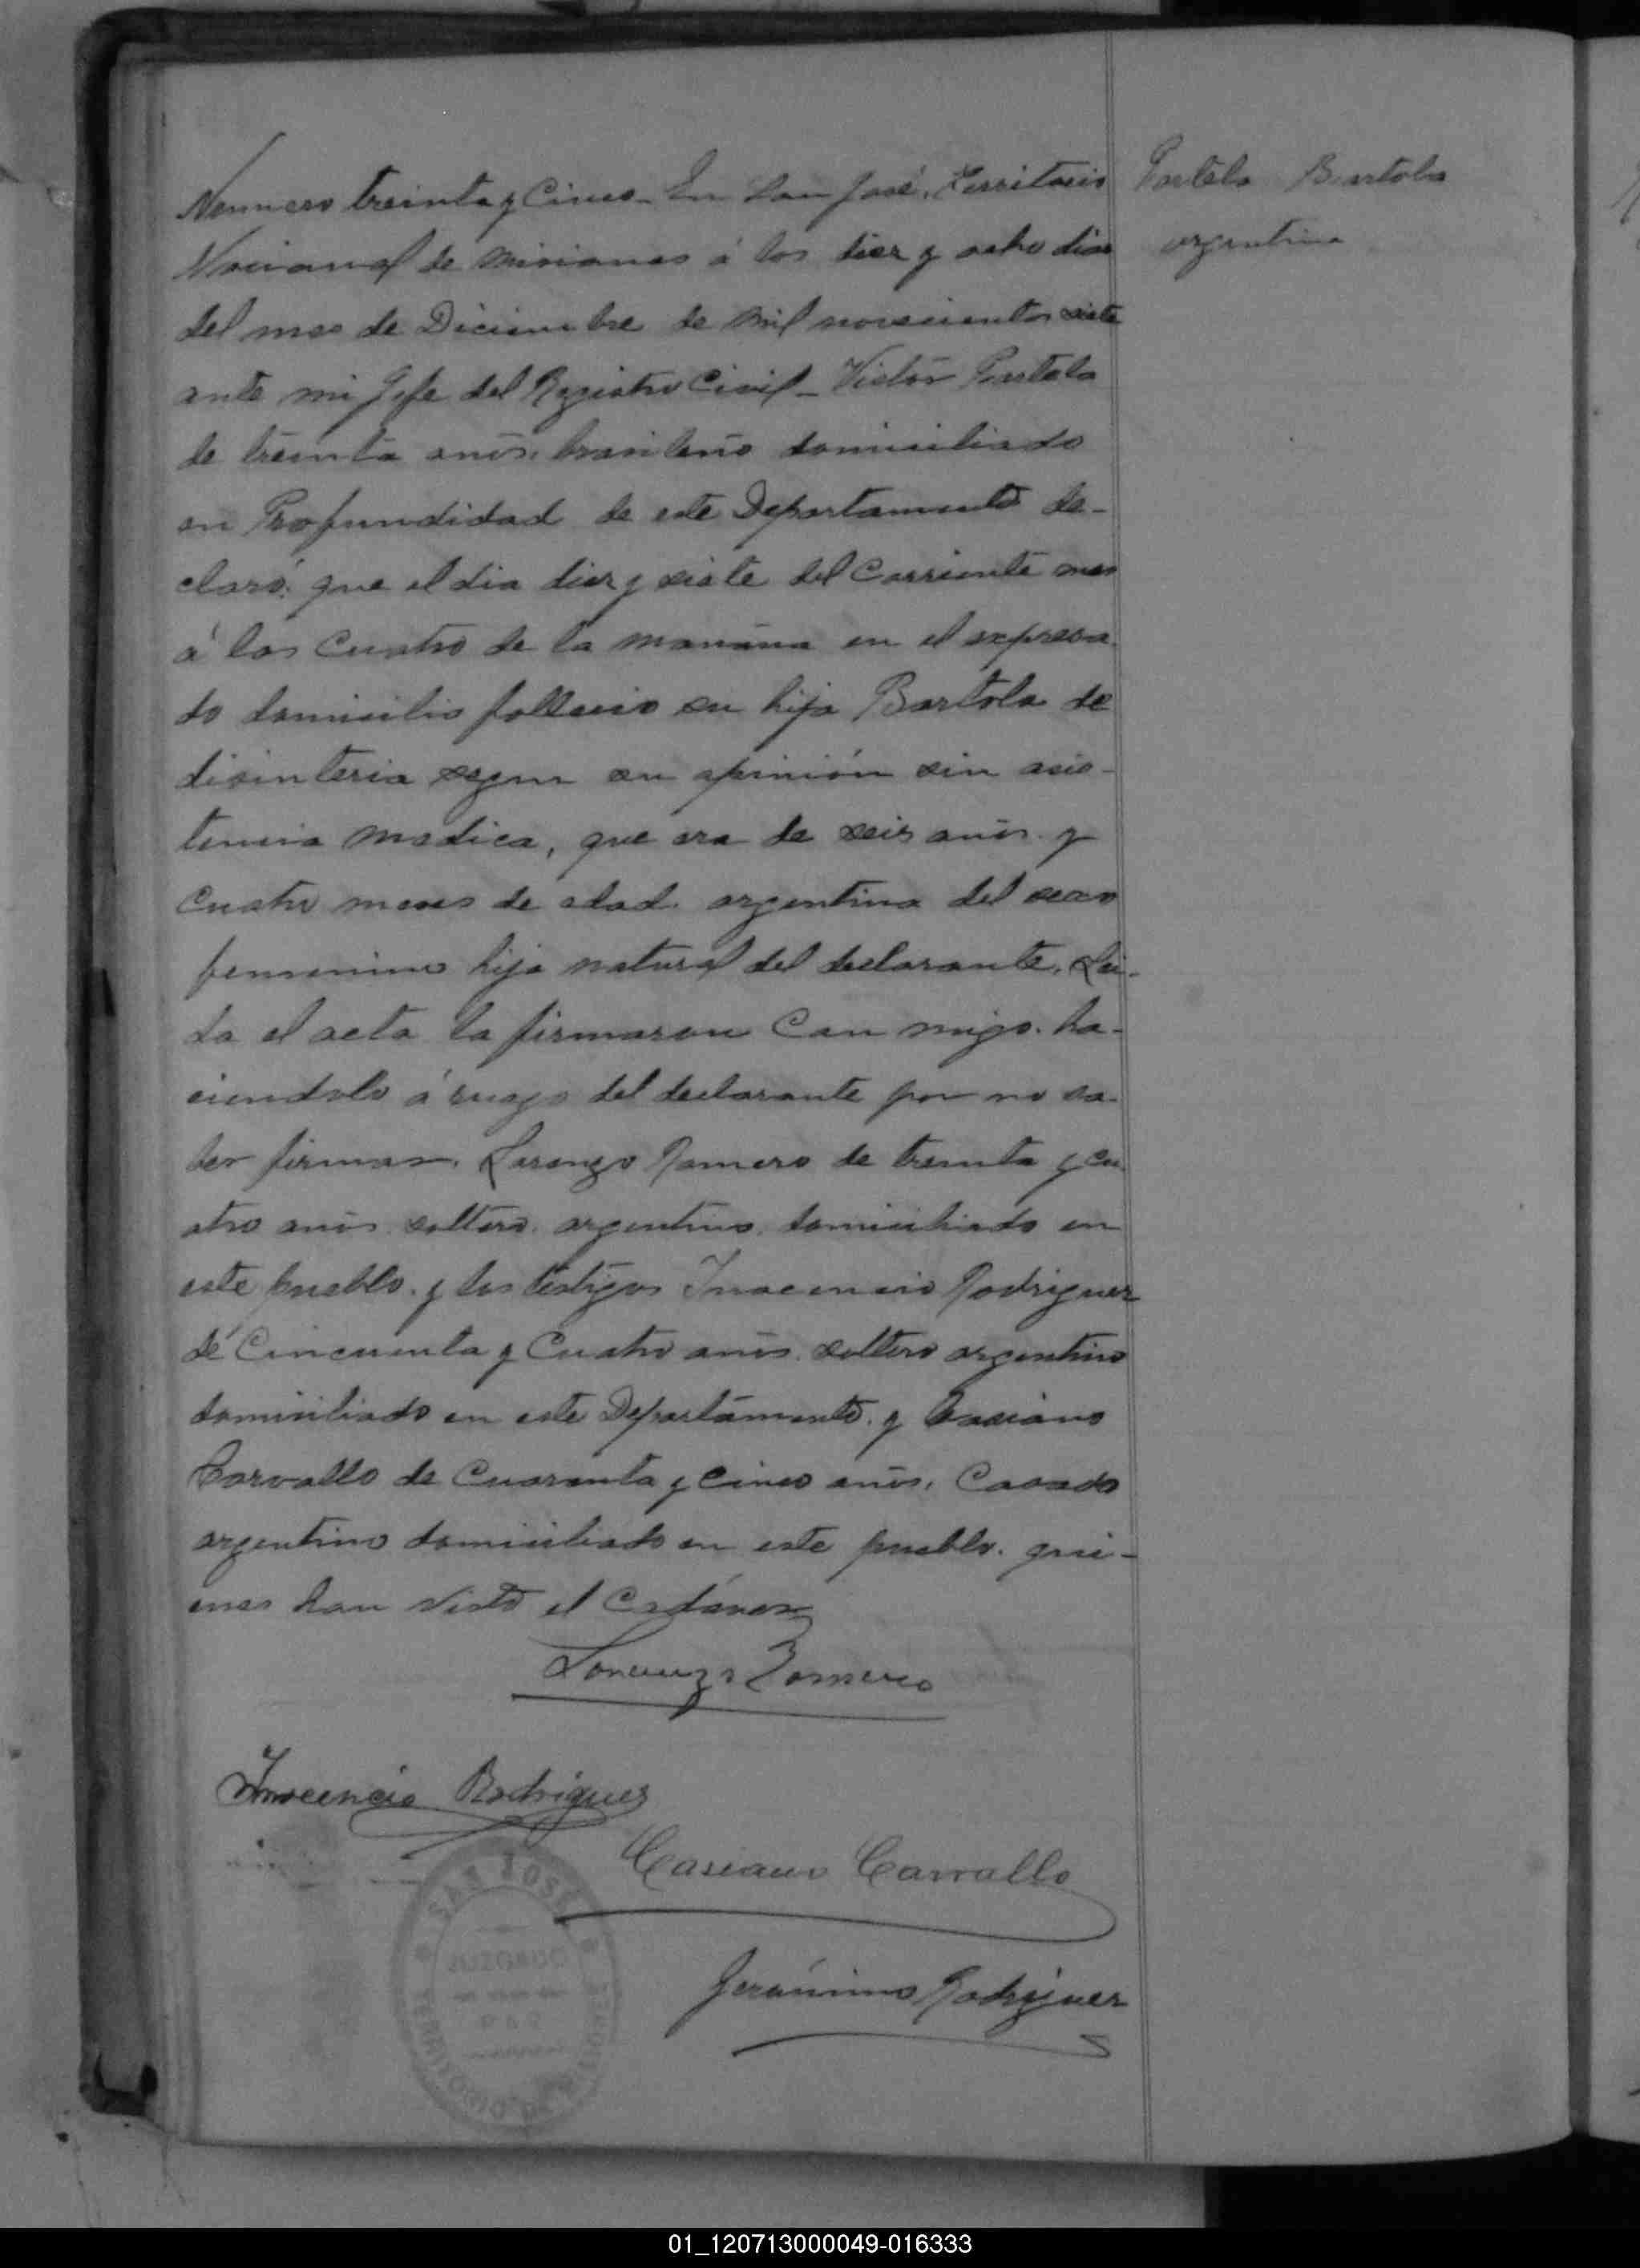 Numero treinta y Cinco - En San José, Territorio
Nacional de Misiones á los diez y ocho dias
del mes de Diciembre de mil novecientos siete
ante mi Jefe del Registro Civil - Victór Portela
de treinta años, brasilero domiciliado
en Profundidad de este Departamento de-
claró: que el dia diez y siete del Corriente mes
á las Cuatro de la mañana en el expresa
do domicilio fallecio su hija Bartola de
disinteria segun su opinión sin asis-
tencia medica, que era de seis años y
Cuatro meses de edad. argentina del sexo
femenino hija natural del declarante. Lei-
da el acta la firmaron Con migo. ha-
ciendolo á ruego del declarante por no sa-
ber firmar, Lorenzo Romero de treinta y cu
atro años soltero argentino, domiciliado en
este pueblo. y los testigos Inocencio Rodriguez
de Cincuenta y Cuatro años soltero argentino
domiciliado en este Departamento. y Casiano
Carvallo de Cuarenta y cinco años, Casado
argentino domiciliado en este pueblo. qui-
enes han visto el Cadáver
Lorenzo Romero
Inocencio Rodriguez
Casiano Carvallo
Jerónimo Rodriguez
Portela Bartola
argentina
SAN JOSE
JUZGADO
DE PAZ
TERRITORIO DE MISIONES
01_120713000049-016333